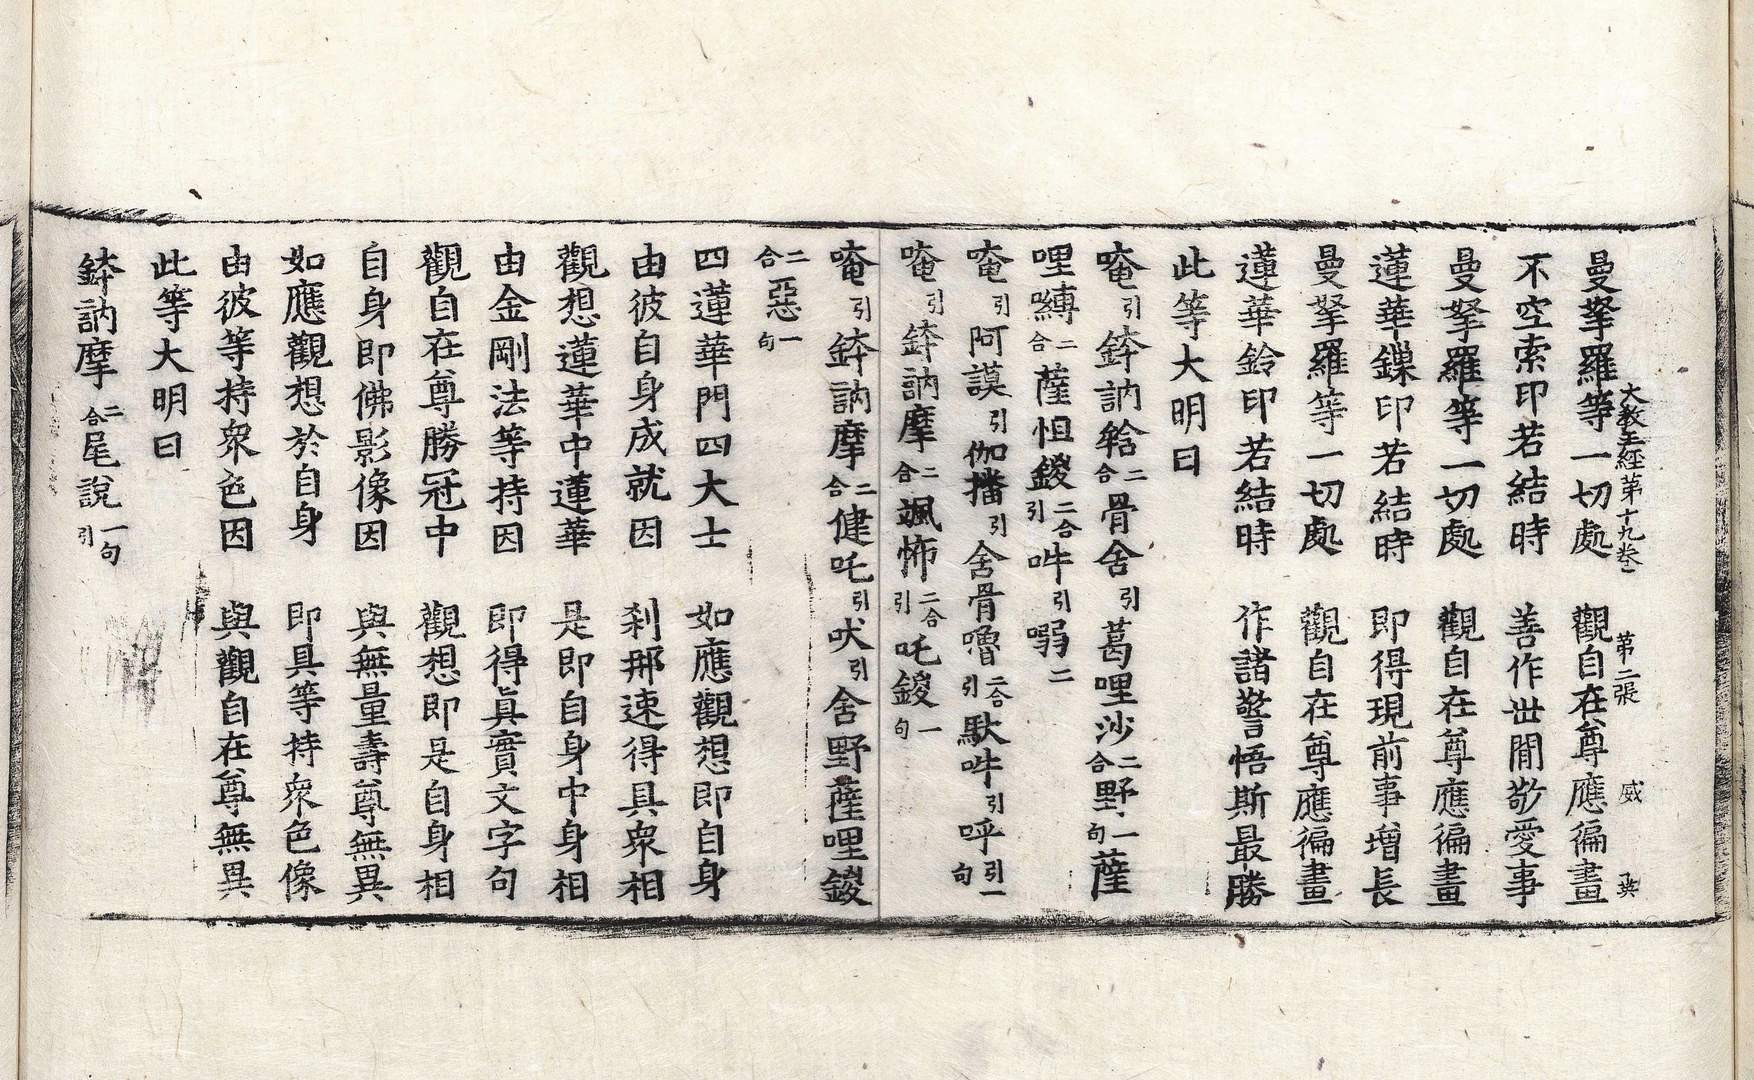 大教王經第十九卷 第二張 威 英
曼拏羅等一切處 觀自在尊應徧畫
不空索印若結時 善作世間敬愛事
曼拏羅等一切處 觀自在尊應徧畫
蓮華鏁印若結時 即得現前事增長
曼拏羅等一切處 觀自在尊應徧畫
蓮華鈴印若結時 作諸警悟斯最勝
此等大明曰
唵引鉢訥𤚥二合骨舍引葛哩沙二合野一句薩
哩嚩二合薩怛鑁二合引吽引㘃二
唵引阿謨引伽播引舍骨嚕二合引馱吽引呼引一句
唵引鉢訥摩二合颯怖二合引吒鑁一句
唵引鉢訥摩二合健吒引吠引舍野薩哩鑁
二合惡一句
四蓮華門四大士 如應觀想即自身
由彼自身成就因 刹那速得具衆相
觀想蓮華中蓮華 是即自身中身相
由金剛法等持因 即得眞實文字句
觀自在尊勝冠中 觀想即是自身相
自身即佛影像因 與無量壽尊無異
如應觀想於自身 即具等持衆色像
由彼等持衆色因 與觀自在尊無異
此等大明曰
鉢訥摩二合尾說一句引